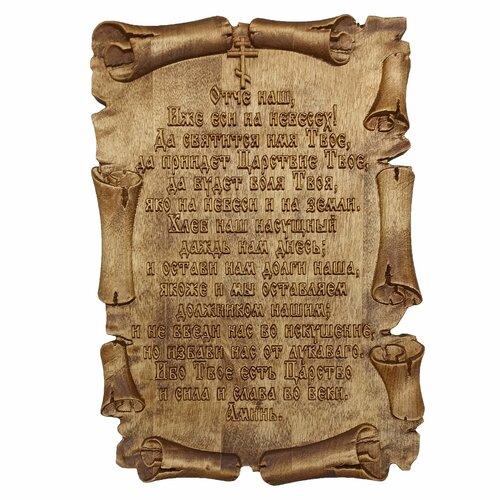 Отче наш,
Иже еси на небесех!
Да святится имя Твое,
да приидет Царствие Твое,
да будет воля Твоя,
яко на небеси и на земли.
Хлеб наш насущный
даждь нам днесь;
и остави нам долги наша,
якоже и мы оставляем
должником нашим;
и не введи нас во искушение,
но избави нас от лукаваго.
Ибо Твое есть Царство
и сила и слава во веки.
Аминь.